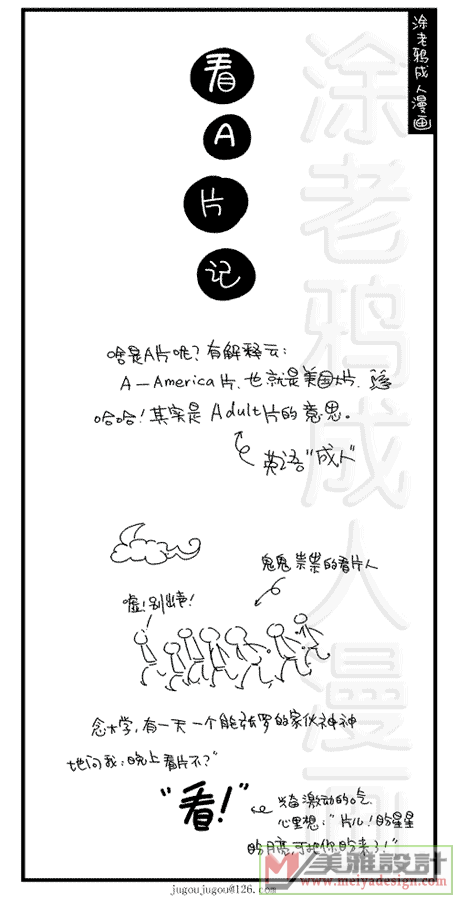 涂老鸦成人漫画
涂老鸦成人漫画
看
A
片
记
啥是A片呢？有解释云：
A—America片，也就是美国大片，
哈哈！其实是Adult片的意思。
英语"成人"
鬼鬼祟祟的看片人
嘘！别出声！
念大学，有一天一个能张罗的家伙神神
地问我：晚上看片不？"
"看！"
兴奋激动的吃，
心里想："片儿！盼星星
盼月亮，可把你盼来了！"
美雅設計
www.meiyadesign.com
jugoujugou@126.com